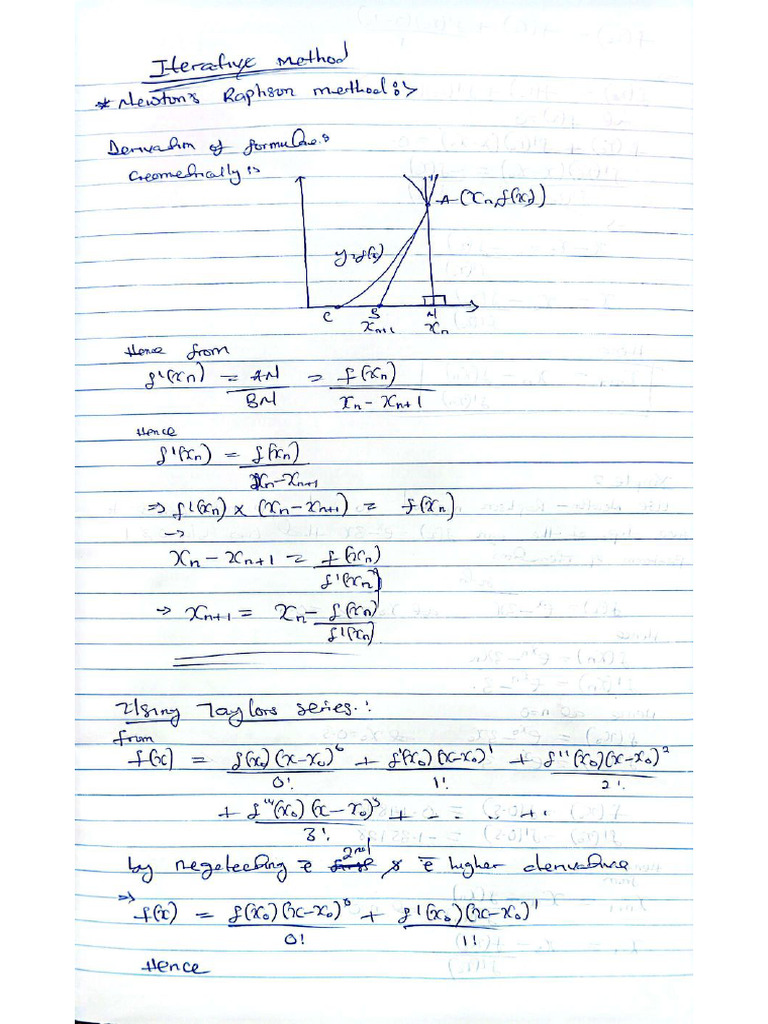 Iterative method
* Newton's Raphson method:>
Derivation of formulae:
Geometrically:
A (xn, f(xn))
y=f(x)
C B N
xn+1 xn
Hence from
f'(xn) = AN/BN = f(xn)/(xn - xn+1)
Hence
f'(xn) = f(xn)/(xn - xn+1)
⇒ f'(xn) × (xn - xn+1) = f(xn)
→
xn - xn+1 = f(xn)/f'(xn)
→ xn+1 = xn - f(xn)/f'(xn)
Using Taylors series:
from
f(x) = f(x₀)(x-x₀)⁰/0! + f'(x₀)(x-x₀)¹/1! + f''(x₀)(x-x₀)²/2!
+ f'''(x₀)(x-x₀)³/3! + - . . . +
by negetecting ē 2nd & ē higher derivative
⇒ f(x) = f(x₀)(x-x₀)⁰/0! + f'(x₀)(x-x₀)¹/1!
Hence